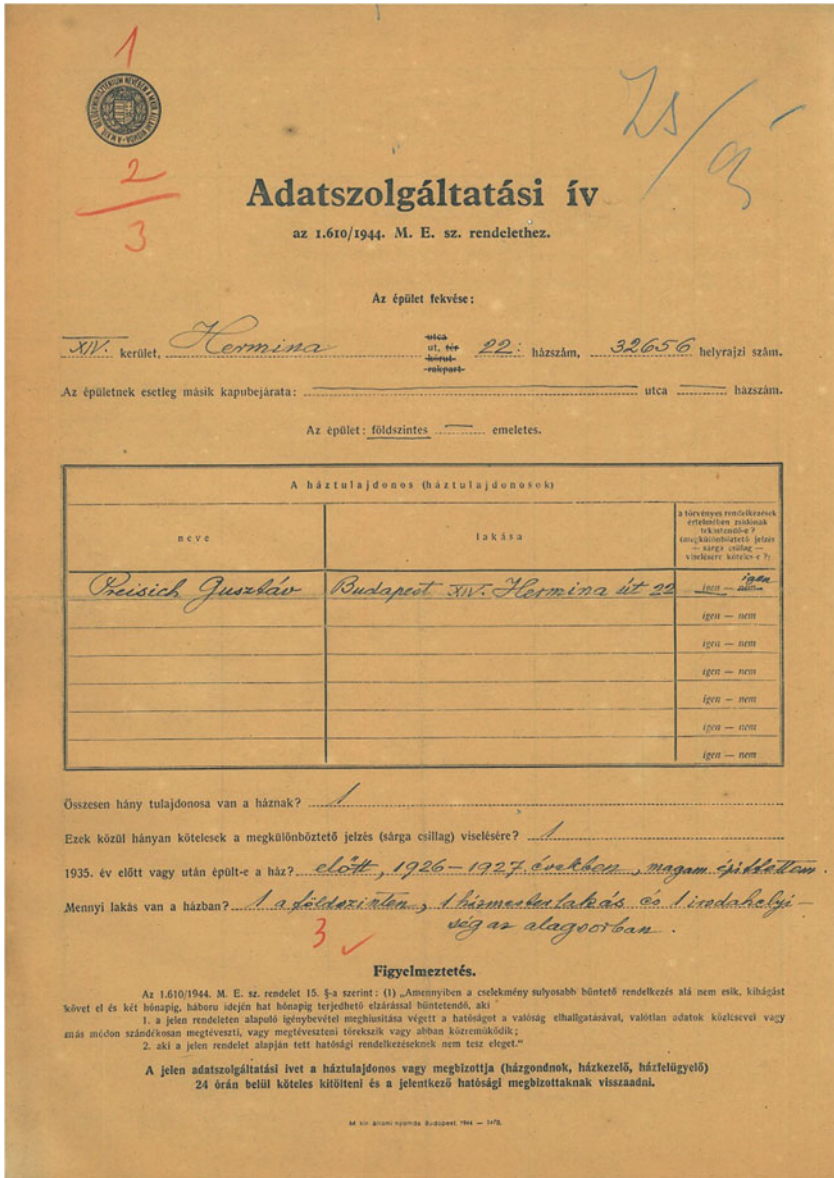 1
2
3
Adatszolgáltatási ív
az 1.610/1944. M. E. sz. rendelethez.
Az épület fekvése:
XIV. kerület, Hermina utca út, tér körut rakpart 22. házszám, 32656 helyrajzi szám.
Az épületnek esetleg másik kapubejárata: utca házszám.
Az épület: földszintes emeletes.
A háztulajdonos (háztulajdonosok)
neve
lakása
a törvényes rendelkezések
értelmében zsidónak
tekintendő-e?
(megkülönböztető jelzés
— sárga csillag —
viselésére köteles-e?)
Preisich Gusztáv Budapest XIV. Hermina út 22 igen — nem igen
igen — nem
igen — nem
igen — nem
igen — nem
igen — nem
igen — nem
Összesen hány tulajdonosa van a háznak? 1
Ezek közül hányan kötelesek a megkülönböztető jelzés (sárga csillag) viselésére? 1
1935. év előtt vagy után épült-e a ház? előtt, 1926–1927. években, magam építtettem
Mennyi lakás van a házban? 1 a földszinten, 1 házmesterlakás és 1 irodahelyi-
ség az alagsorban.
3
Figyelmeztetés.
Az 1.610/1944. M. E. sz. rendelet 15. §-a szerint: (1) „Amennyiben a cselekmény sulyosabb büntető rendelkezés alá nem esik, kihágást
követ el és két hónapig, háboru idején hat hónapig terjedhető elzárással büntetendő, aki
1. a jelen rendeleten alapuló igénybevétel meghiusitása végett a hatóságot a valóság elhallgatásával, valótlan adatok közlésével vagy
más módon szándékosan megtéveszti, vagy megtéveszteni törekszik vagy abban közreműködik;
2. aki a jelen rendelet alapján tett hatósági rendelkezéseknek nem tesz eleget.“
A jelen adatszolgáltatási ivet a háztulajdonos vagy megbizottja (házgondnok, házkezelő, házfelügyelő)
24 órán belül köteles kitölteni és a jelentkező hatósági megbizottaknak visszaadni.
M. kir. állami nyomda. Budapest. 1944. —